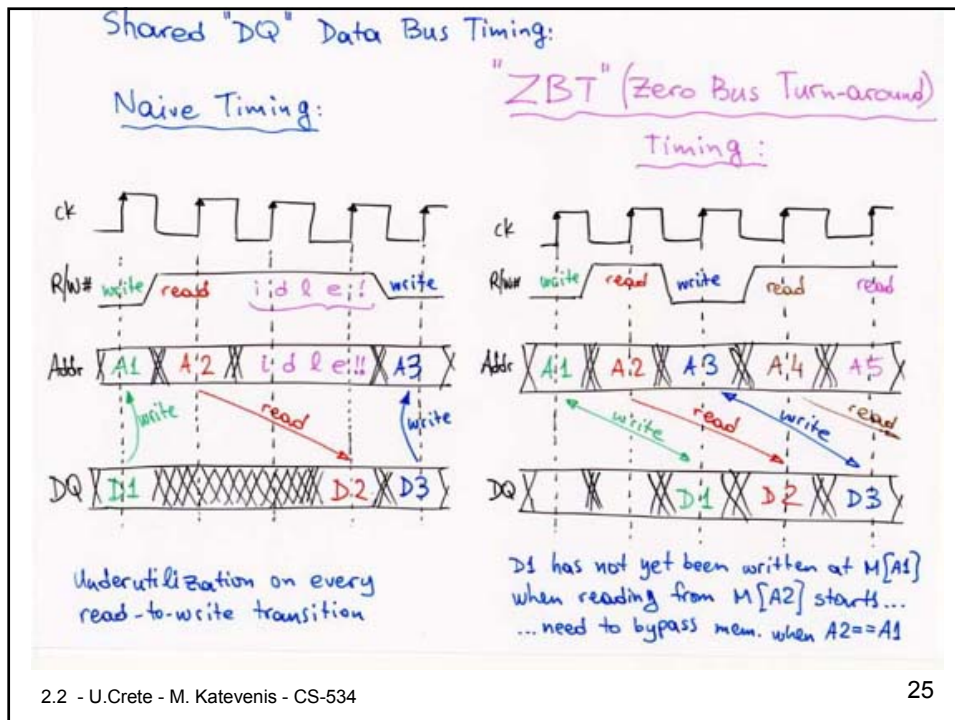 Shared "DQ" Data Bus Timing:
Naive Timing:
ck
R/W# write read idle!! write
Addr A1 A2 idle!! A3
write read write
DQ D1 D2 D3
Underutilization on every
read-to-write transition
"ZBT" (Zero Bus Turn-around)
Timing:
ck
R/W# write read write read read
Addr A1 A2 A3 A4 A5
write read write read
DQ D1 D2 D3
D1 has not yet been written at M[A1]
when reading from M[A2] starts...
...need to bypass mem. when A2==A1
2.2 - U.Crete - M. Katevenis - CS-534
25